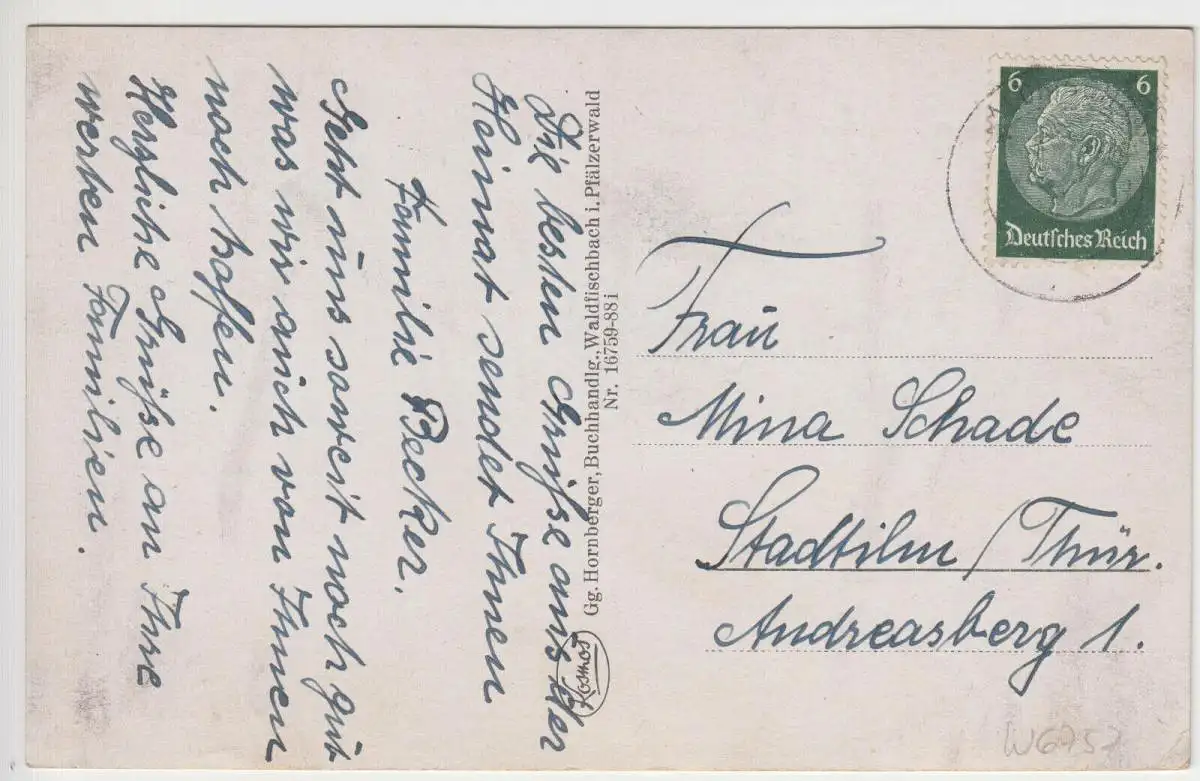 Die besten Grüße aus der
Heimat sendet Ihnen
Familie Becker.
Geht uns soweit noch gut
was wir auch von Ihnen
noch hoffen.
Herzliche Grüße an Ihre
werten Familien.
Gg. Hornberger, Buchhandlg., Waldfischbach i. Pfälzerwald
Nr. 16759-88i
Kosmos
6 6
Deutsches Reich
Frau
Mina Schade
Stadtilm/Thür.
Andreasberg 1.
W6757